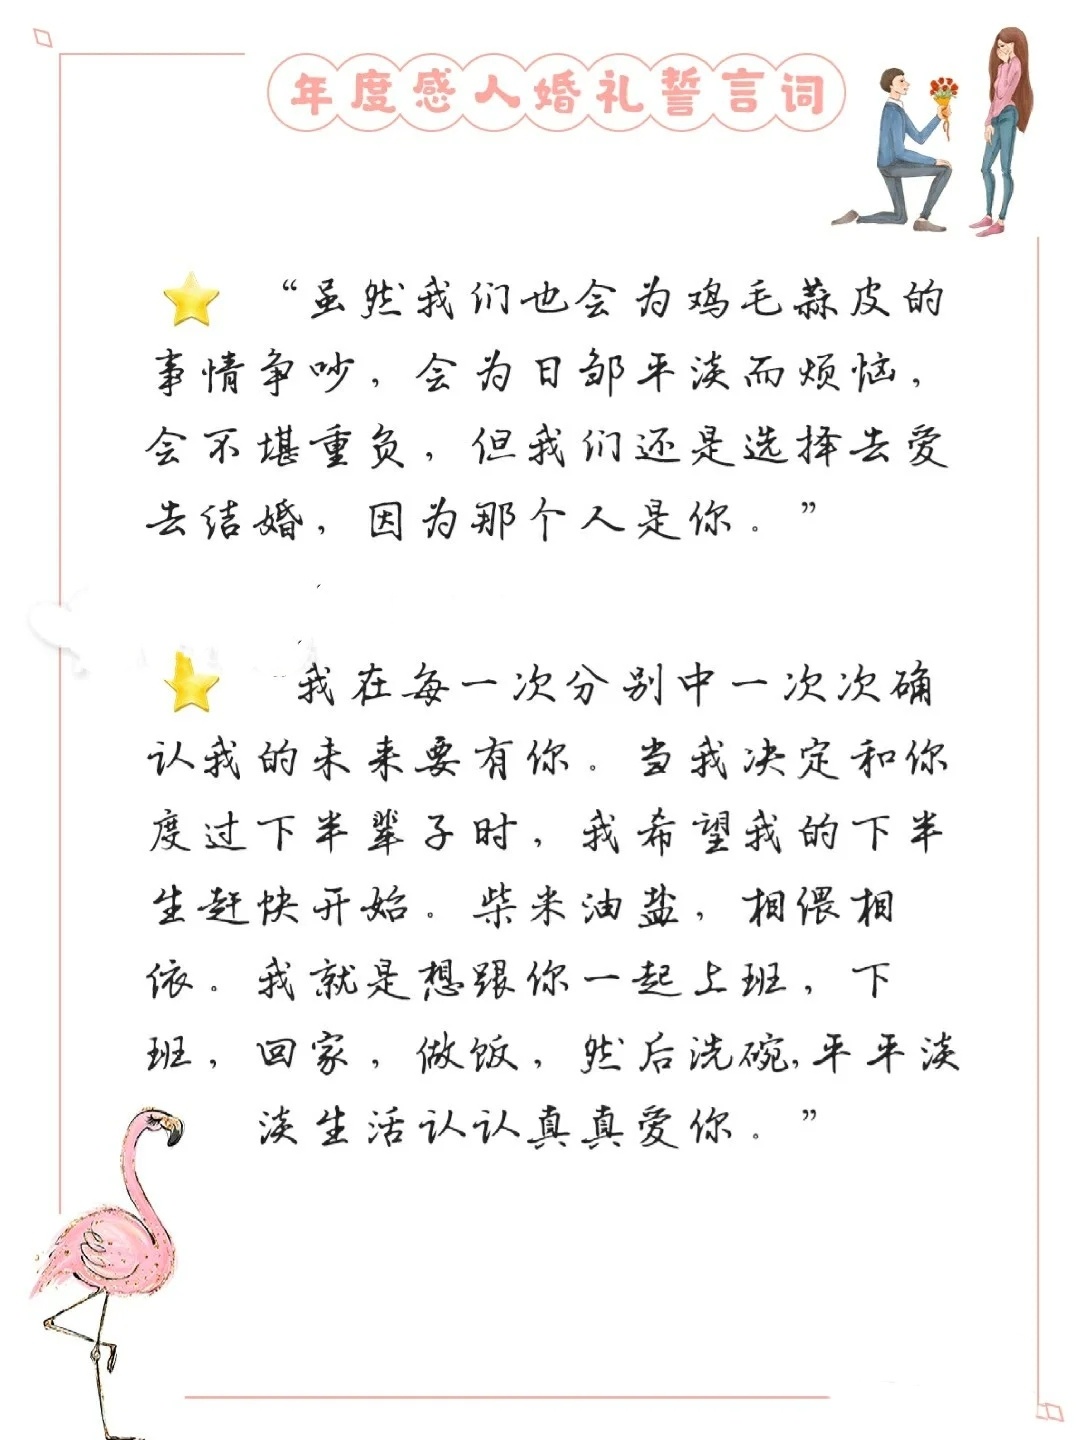 年度感人婚礼誓言词
“虽然我们也会为鸡毛蒜皮的
事情争吵，会为日邹平淡而烦恼，
会不堪重负，但我们还是选择去爱
去结婚，因为那个人是你。”
我在每一次分别中一次次确
认我的未来要有你。当我决定和你
度过下半辈子时，我希望我的下半
生赶快开始。柴米油盐，相偎相
依。我就是想跟你一起上班，下
班，回家，做饭，然后洗碗,平平淡
淡生活认认真真爱你。”